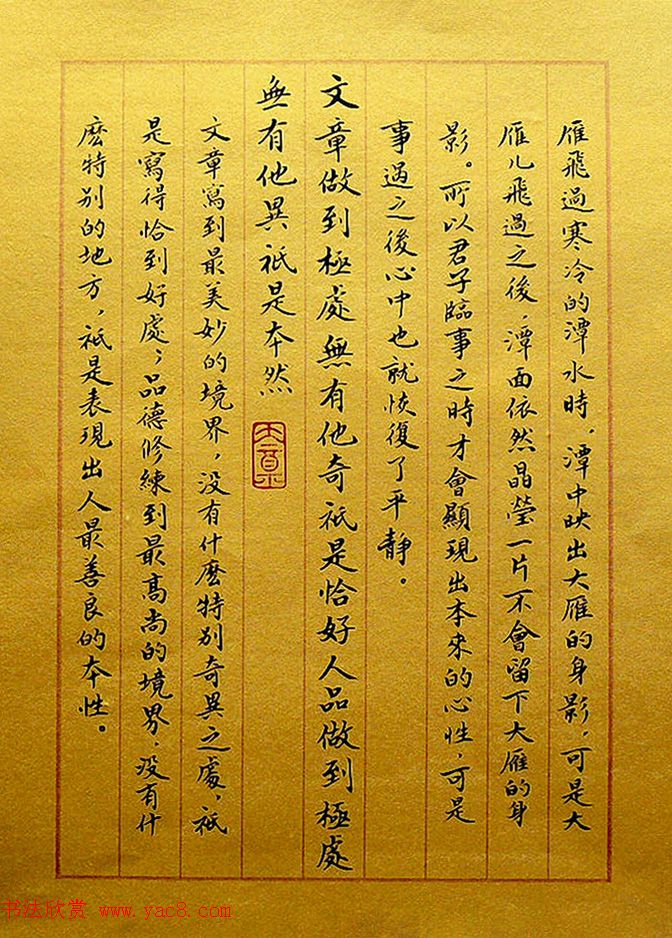 雁飛過寒冷的潭水時，潭中映出大雁的身影，可是大
雁儿飛過之後，潭面依然晶瑩一片不會留下大雁的身
影。所以君子臨事之時才會顯現出本來的心性，可是
事過之後心中也就恢復了平靜。
文章做到極處無有他奇祇是恰好人品做到極處
無有他異祇是本然
文章寫到最美妙的境界，没有什麽特别奇異之處，祇
是寫得恰到好處；品德修練到最高尚的境界，没有什
麽特别的地方，祇是表現出人最善良的本性。
书法欣赏 www.yac8.com